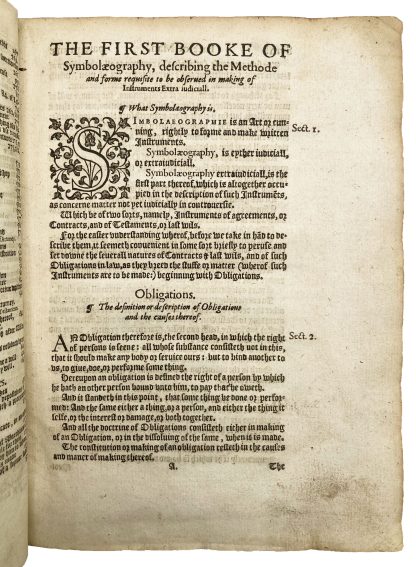 THE FIRST BOOKE OF
Symbolæography, describing the Methode
and forme requisite to be observed in making of
Instruments Extra iudiciall.
¶ What Symbolæography is.
SIMBOLAEOGRAPHIE is an Art or cun-
ning, rightly to forme and make written
Instruments.
Sect. 1.
Symbolæography, is eyther iudiciall,
or extraiudiciall.
Symbolæography extraiudiciall, is the
first part thereof, which is altogether occu-
pied in the description of such Instrumẽts,
as concerne matters not yet iudicially in controuersie.
Which be of two sorts, namely, Instruments of agreements, or
Contracts, and of Testaments, or last wils.
For the easier vnderstanding wherof, before we take in hãd to de-
scribe them, it seemeth conuenient in some sort briefly to peruse and
set downe the seuerall natures of Contracts & last wils, and of such
Obligations in law, as they breed the stuffe or matter (wherof such
Instruments are to be made) beginning with Obligations.
Obligations.
¶ The definition or description of Obligations
and the causes thereof.
AN Obligation therefore is, the second head, in which the right
of persons is seene: all whose substance consisteth not in this,
that it should make any body or seruice ours: but to bind another to
vs, to giue, doe, or performe some thing.
Sect. 2.
Hereupon an obligation is defined the right of a person by which
he hath an other person bound vnto him, to pay that he oweth.
And it standeth in this point, that some thing be done or perfor-
med: And the same either a thing, or a person, and either the thing it
selfe, or the interest or damage, or both together.
And all the doctrine of Obligations consisteth either in making
of an Obligation, or in the dissoluing of the same, when it is made.
The constitution or making of an obligation resteth in the causes
and maner of making thereof.
A.
The